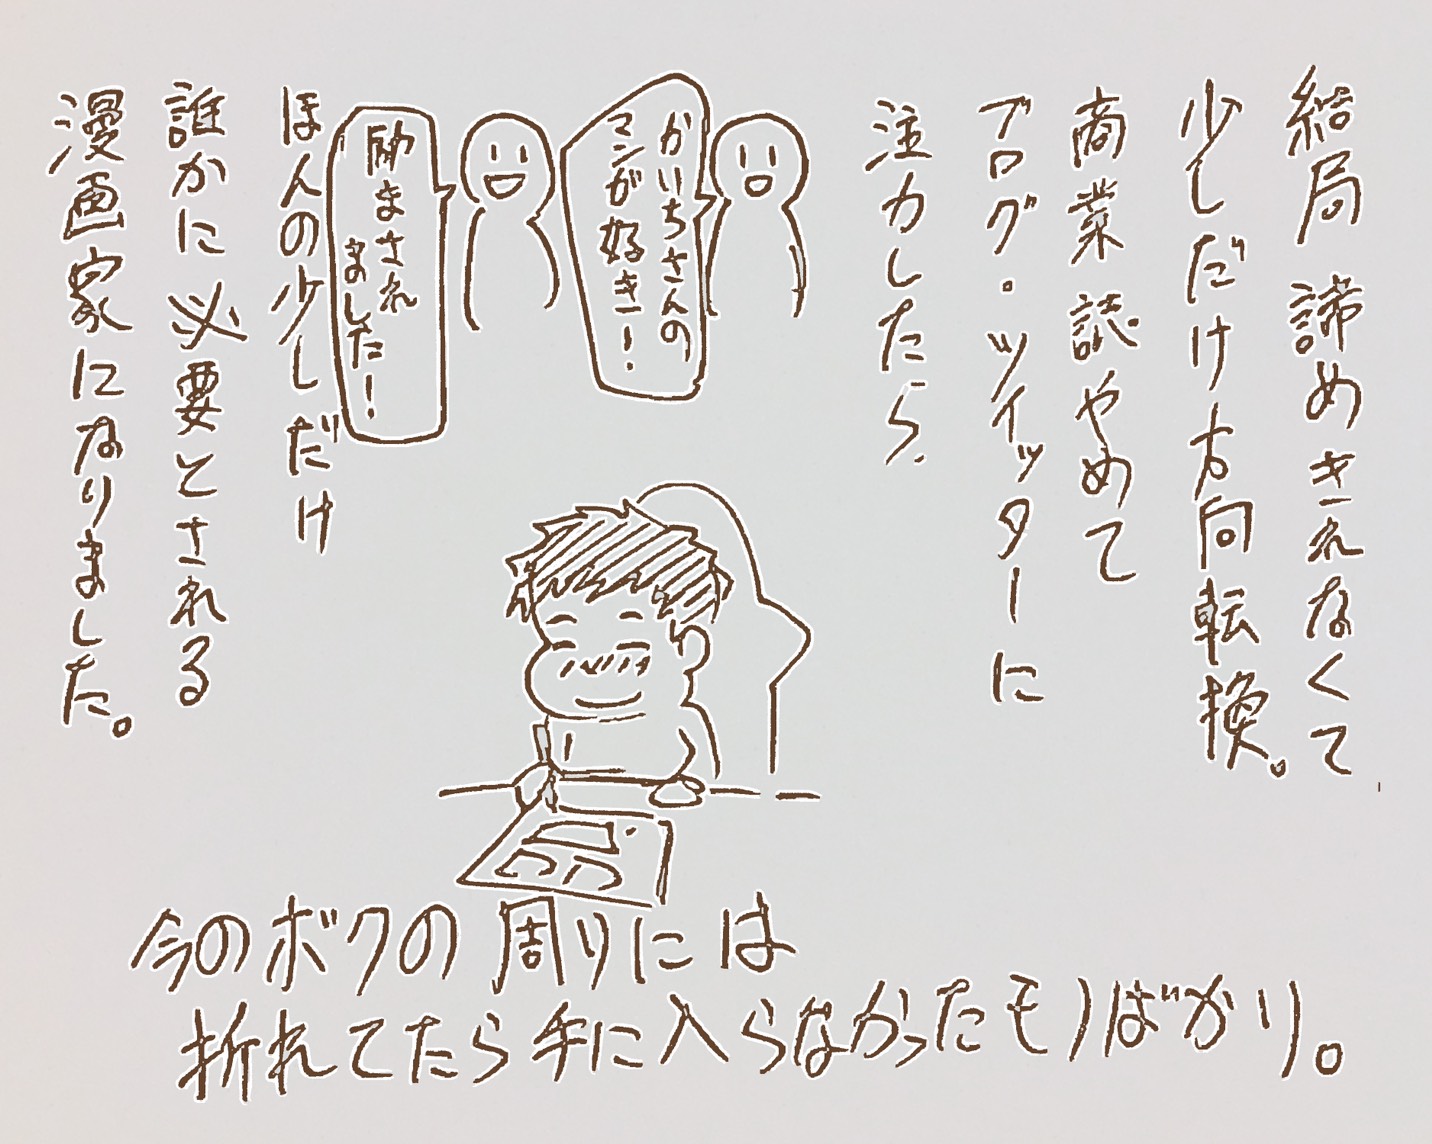 結局諦めきれなくて
少しだけ方向転換。
商業誌やめて
ブログ・ツイッターに
注力したら、
かいちさんの
マンガ好き!
励まされ
ました!
ほんの少しだけ
誰かに必要とされる
漫画家になりました。
今のボクの周りには
折れてたら手に入らなかったモノばかり。